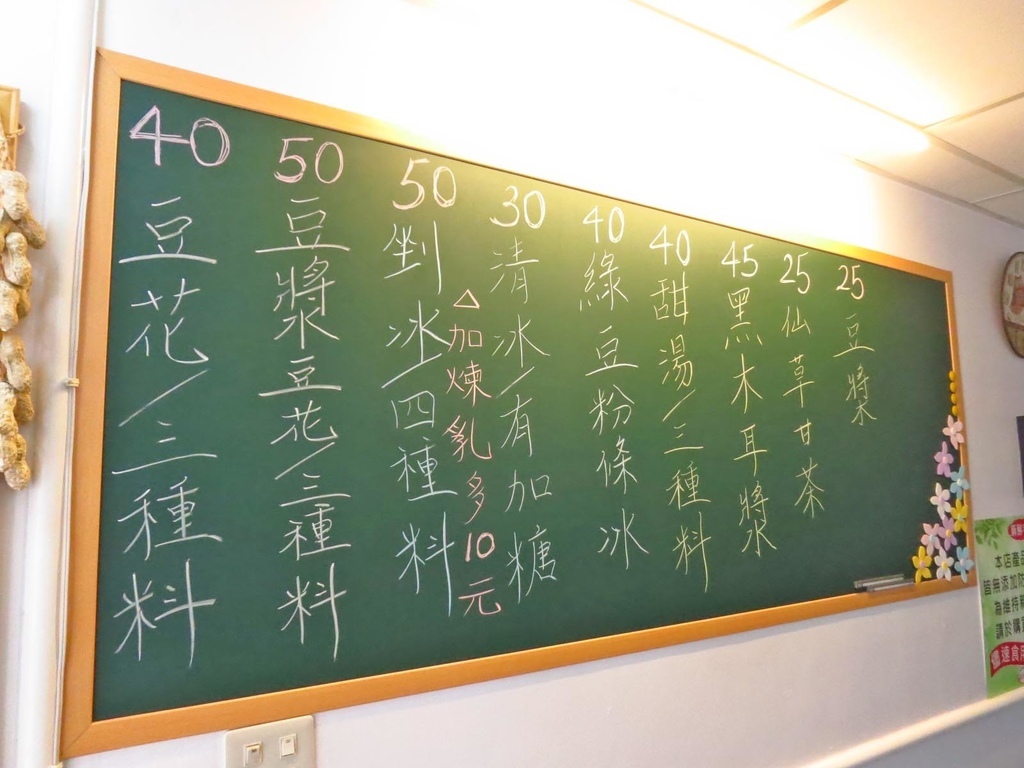 40 豆花/三種料
50 豆漿豆花/三種料
50 剉冰/四種料
△加煉乳多10元
30 清冰/有加糖
40 綠豆粉條冰
40 甜湯/三種料
45 黑木耳漿
25 仙草甘茶
25 豆漿
本店產品
皆無添加防
為維持
請於購
速食用